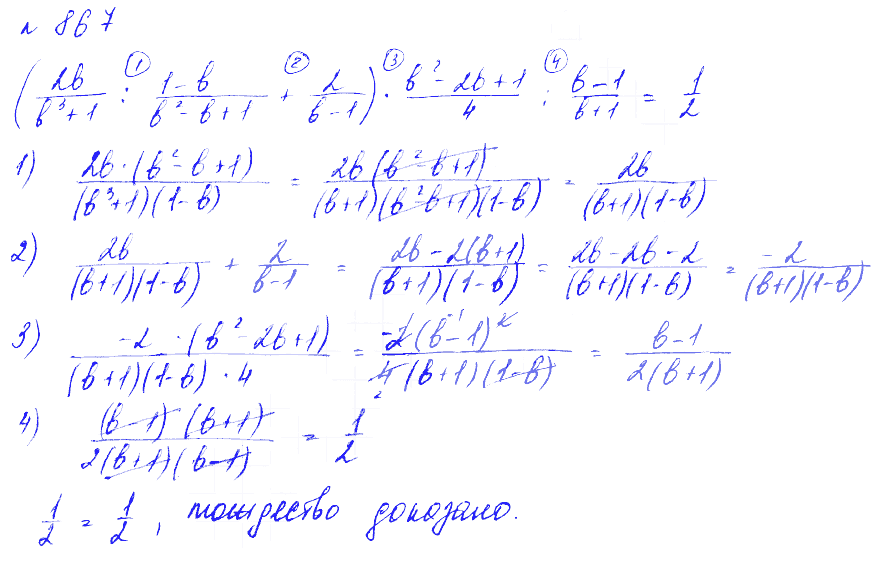 № 867
(2b/(b³+1) :① (1-b)/(b²-b+1) +② 2/(b-1)) ·③ (b²-2b+1)/4 :④ (b-1)/(b+1) = 1/2
1) 2b·(b²-b+1)/((b³+1)(1-b)) = 2b(b²-b+1)/((b+1)(b²-b+1)(1-b)) = 2b/((b+1)(1-b))
2) 2b/((b+1)(1-b)) + 2/(b-1) = (2b-2(b+1))/((b+1)(1-b)) = (2b-2b-2)/((b+1)(1-b)) = -2/((b+1)(1-b))
3) -2·(b²-2b+1)/((b+1)(1-b)·4) = -2(b-1)²/(4(b+1)(1-b)) = (b-1)/(2(b+1))
4) (b-1)(b+1)/(2(b+1)(b-1)) = 1/2
1/2 = 1/2, тождество доказано.